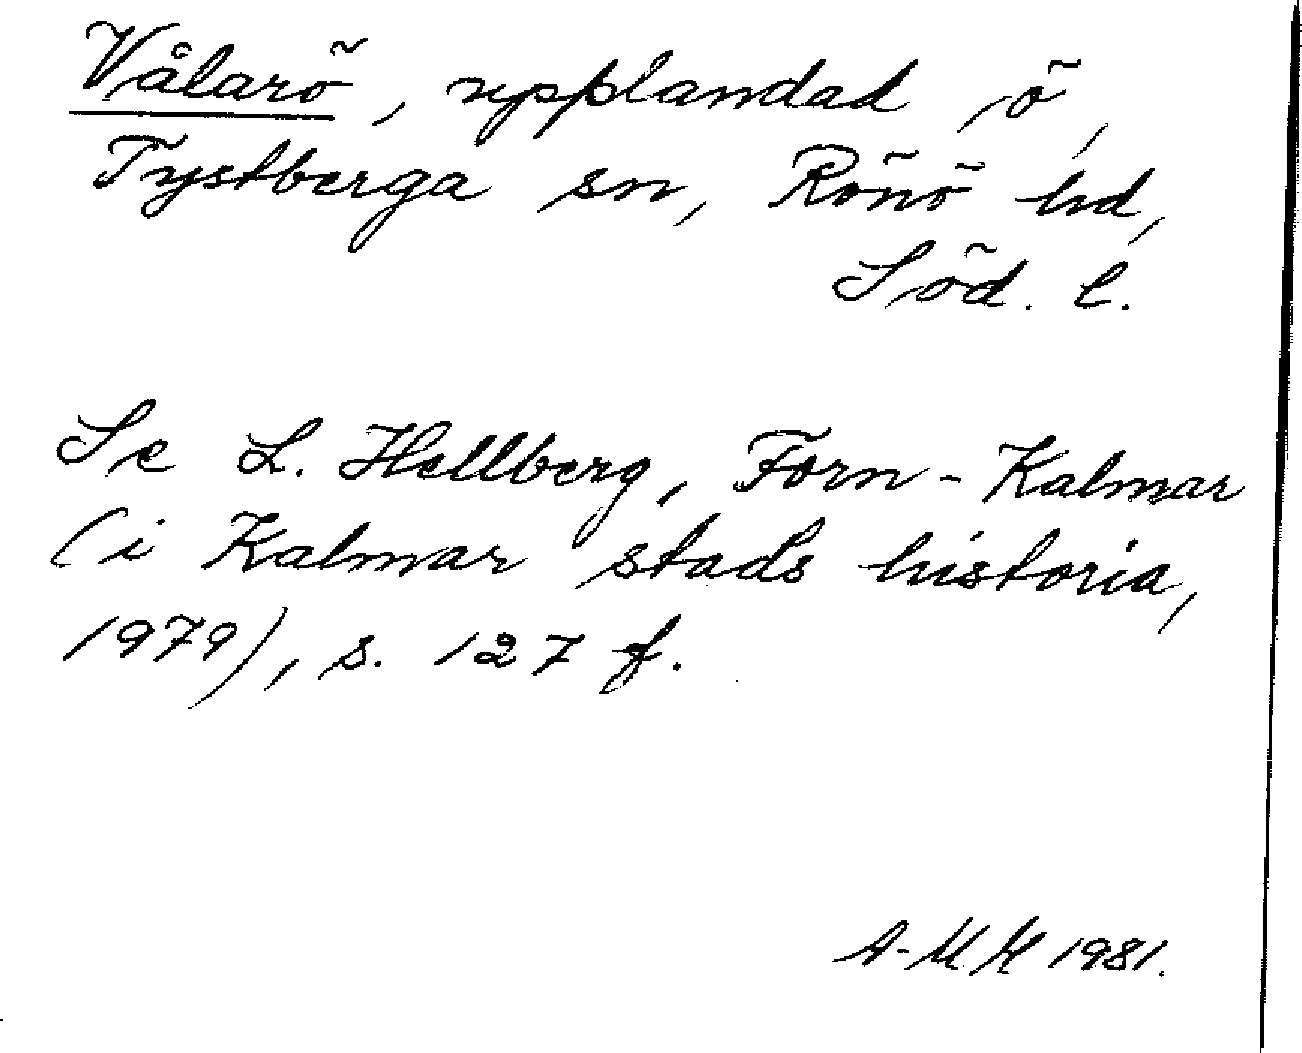 Vålarö, upplandad ö,
Tystberga sn, Rönö hd,
Söd. l.
Se L. Hellberg, Forn-Kalmar
(i Kalmar stads historia,
1979), s. 127 f.
A-MH 1981.